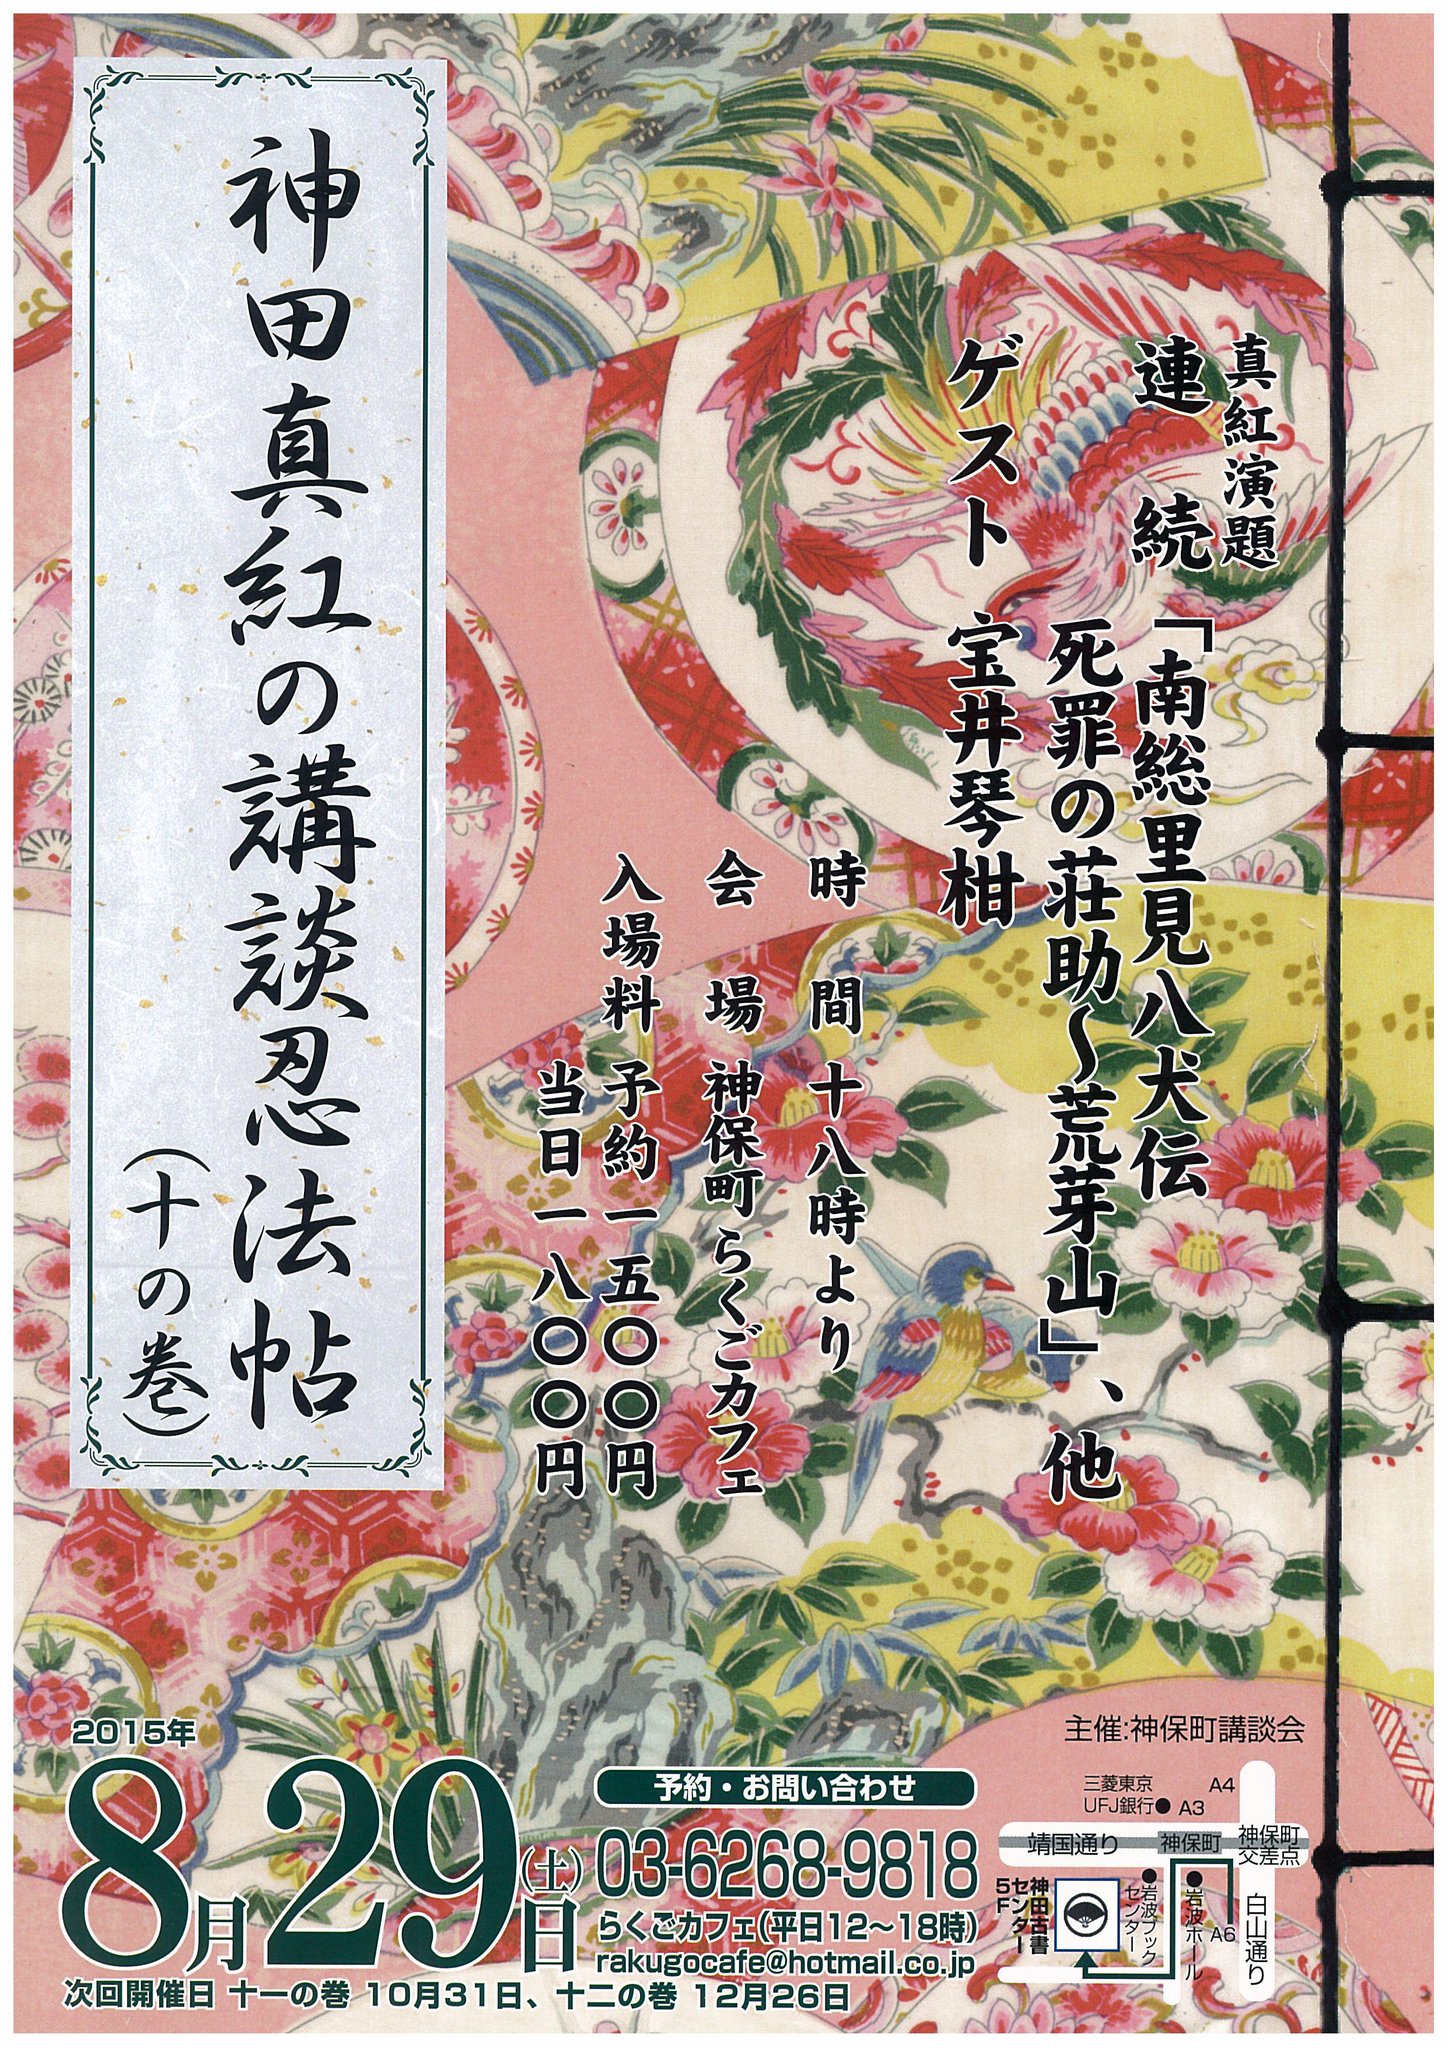 真紅演題
連続「南総里見八犬伝
死罪の荘助〜荒芽山」、他
ゲスト 宝井琴柑
時間 十八時より
会場 神保町らくごカフェ
入場料 予約一五〇〇円
当日一八〇〇円
神田真紅の講談忍法帖
(十の巻)
2015年
8月29日(土)
予約・お問い合わせ
03-6268-9818
らくごカフェ(平日12〜18時)
rakugocafe@hotmail.co.jp
次回開催日 十一の巻 10月31日、十二の巻 12月26日
主催:神保町講談会
三菱東京
UFJ銀行
A4
A3
靖国通り
神保町
神保町
交差点
神田古書
センター
5F
岩波ブック
センター
岩波ホール
A6
白山通り